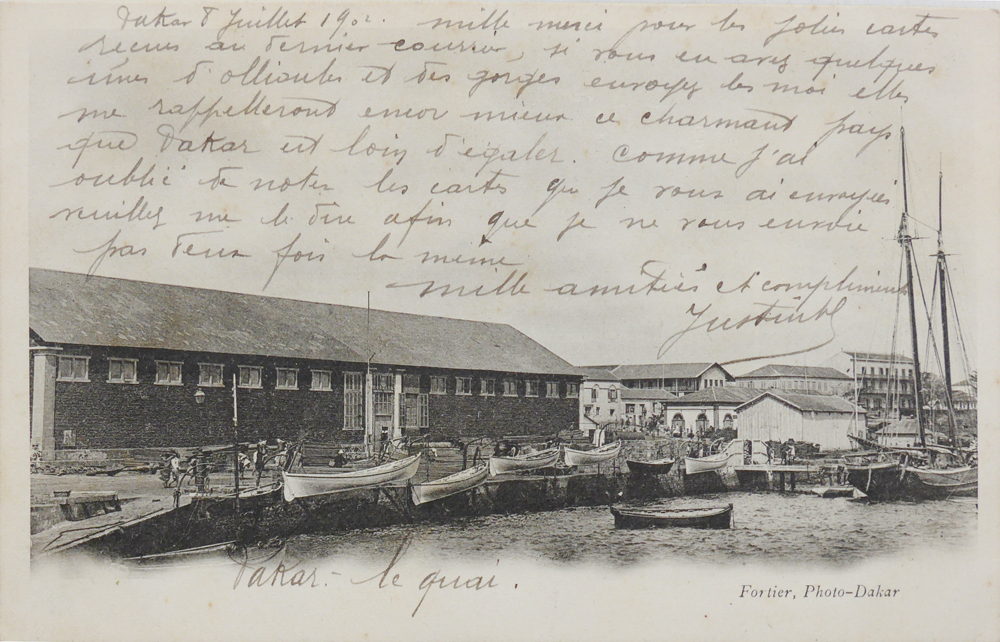 Dakar 8 Juillet 1902. mille merci pour les jolies cartes
recues au dernier courrier, si vous en avez quelques
unes d'ollioules et des gorges envoyez les moi elles
me rappelleront encor mieux ce charmant pays
que Dakar est loin d'égaler. Comme j'ai
oublié de noter les cartes que je vous ai envoyées
veuillez me le dire afin que je ne vous envoie
pas deux fois la même
mille amitiés et compliments
Justin
Dakar.- le quai.
Fortier, Photo-Dakar